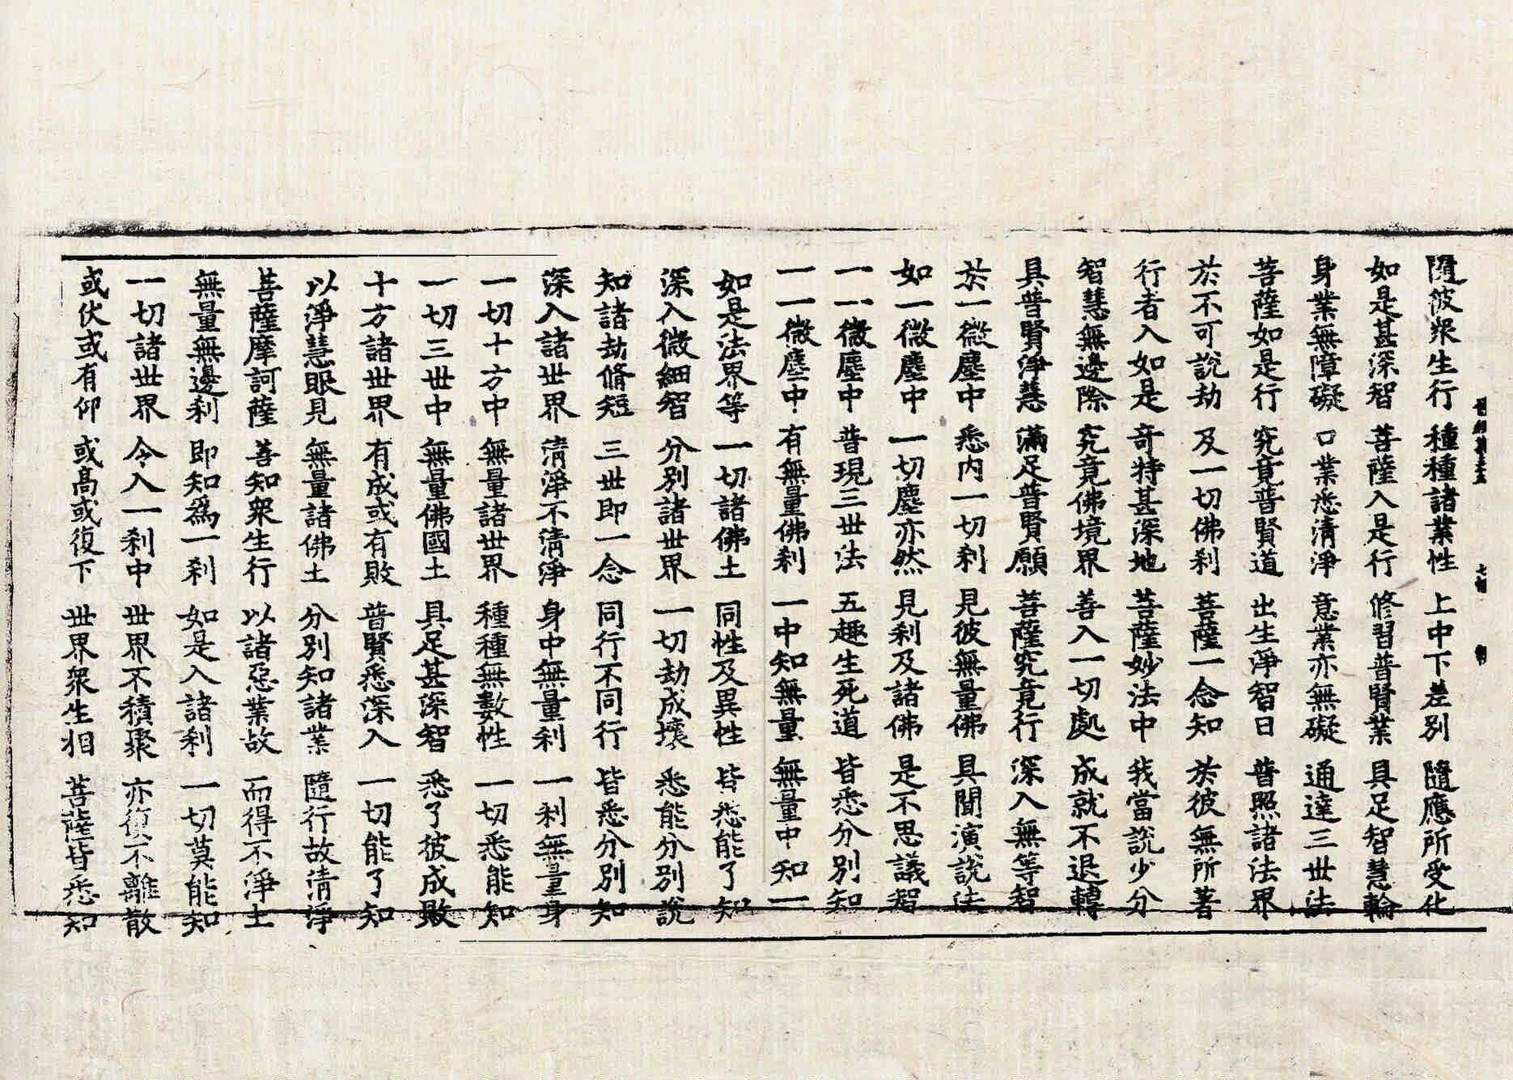 隨彼衆生行 種種諸業性 上中下差別 隨應所受化
如是甚深智 菩薩入是行 修習普賢業 具足智慧輪
身業無障礙 口業悉清淨 意業亦無礙 通達三世法
菩薩如是行 究竟普賢道 出生淨智日 普照諸法界
於不可說劫 及一切佛刹 菩薩一念知 於彼無所著
行者入如是 奇特甚深地 菩薩妙法中 我當說少分
智慧無邊際 究竟佛境界 善入一切處 成就不退轉
具普賢淨慧 滿足普賢願 菩薩究竟行 深入無等智
於一微塵中 悉內一切刹 見彼無量佛 具聞演說法
如一微塵中 一切塵亦然 見刹及諸佛 是不思議智
一一微塵中 普現三世法 五趣生死道 皆悉分別知
一一微塵中 有無量佛刹 一中知無量 無量中知一
如是法界等 一切諸佛土 同性及異性 皆悉能了知
深入微細智 分別諸世界 一切劫成壞 悉能分別說
知諸劫脩短 三世即一念 同行不同行 皆悉分別知
深入諸世界 清淨不清淨 身中無量刹 一刹無量身
一切十方中 無量諸世界 種種無數性 一切悉能知
一切三世中 無量佛國土 具足甚深智 悉了彼成敗
十方諸世界 有成或有敗 普賢悉深入 一切能了知
以淨慧眼見 無量諸佛土 分別知諸業 隨行故清淨
菩薩摩訶薩 善知衆生行 以諸惡業故 而得不淨土
無量無邊刹 即知爲一刹 如是入諸刹 一切莫能知
一切諸世界 令入一刹中 世界不積聚 亦復不離散
或伏或有仰 或高或復下 世界衆生相 菩薩皆悉知